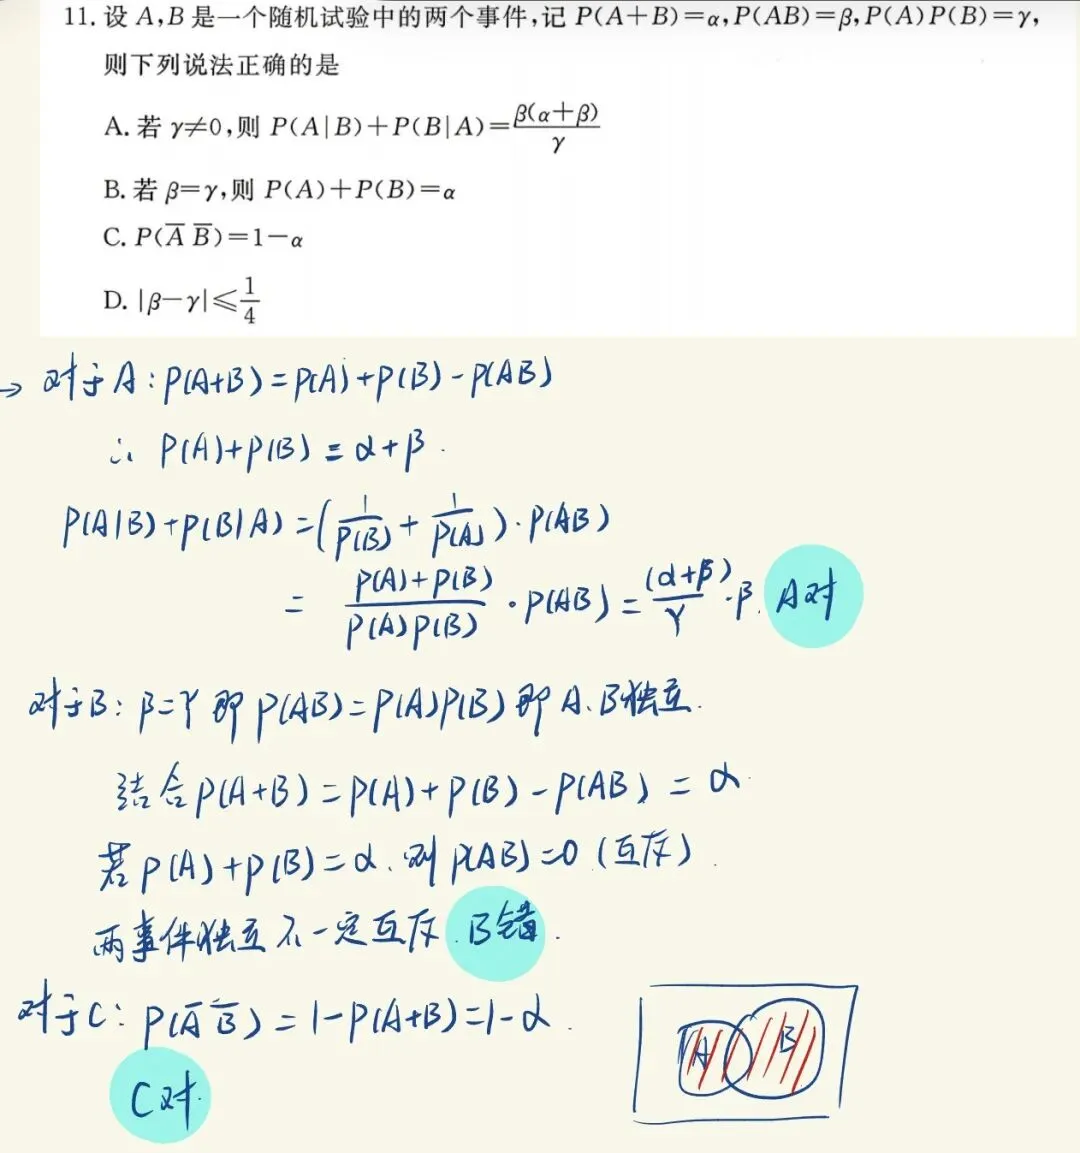 11. 设 A,B 是一个随机试验中的两个事件,记 P(A+B)=α,P(AB)=β,P(A)P(B)=γ,
则下列说法正确的是
A. 若 γ≠0,则 P(A|B)+P(B|A)=β(α+β)/γ
B. 若 β=γ,则 P(A)+P(B)=α
C. P(A̅ B̅)=1-α
D. |β-γ|≤1/4
→ 对于A:P(A+B)=P(A)+P(B)-P(AB)
∴ P(A)+P(B)=α+β.
P(A|B)+P(B|A)=(1/P(B)+1/P(A))·P(AB)
= (P(A)+P(B))/(P(A)P(B))·P(AB)=(α+β)/γ·β. A对
对于B:β=γ即P(AB)=P(A)P(B)即A、B独立.
结合P(A+B)=P(A)+P(B)-P(AB)=α
若P(A)+P(B)=α.则P(AB)=0(互斥).
两事件独立不一定互斥.B错.
对于C:P(A̅ B̅)=1-P(A+B)=1-α.
A B
C对.